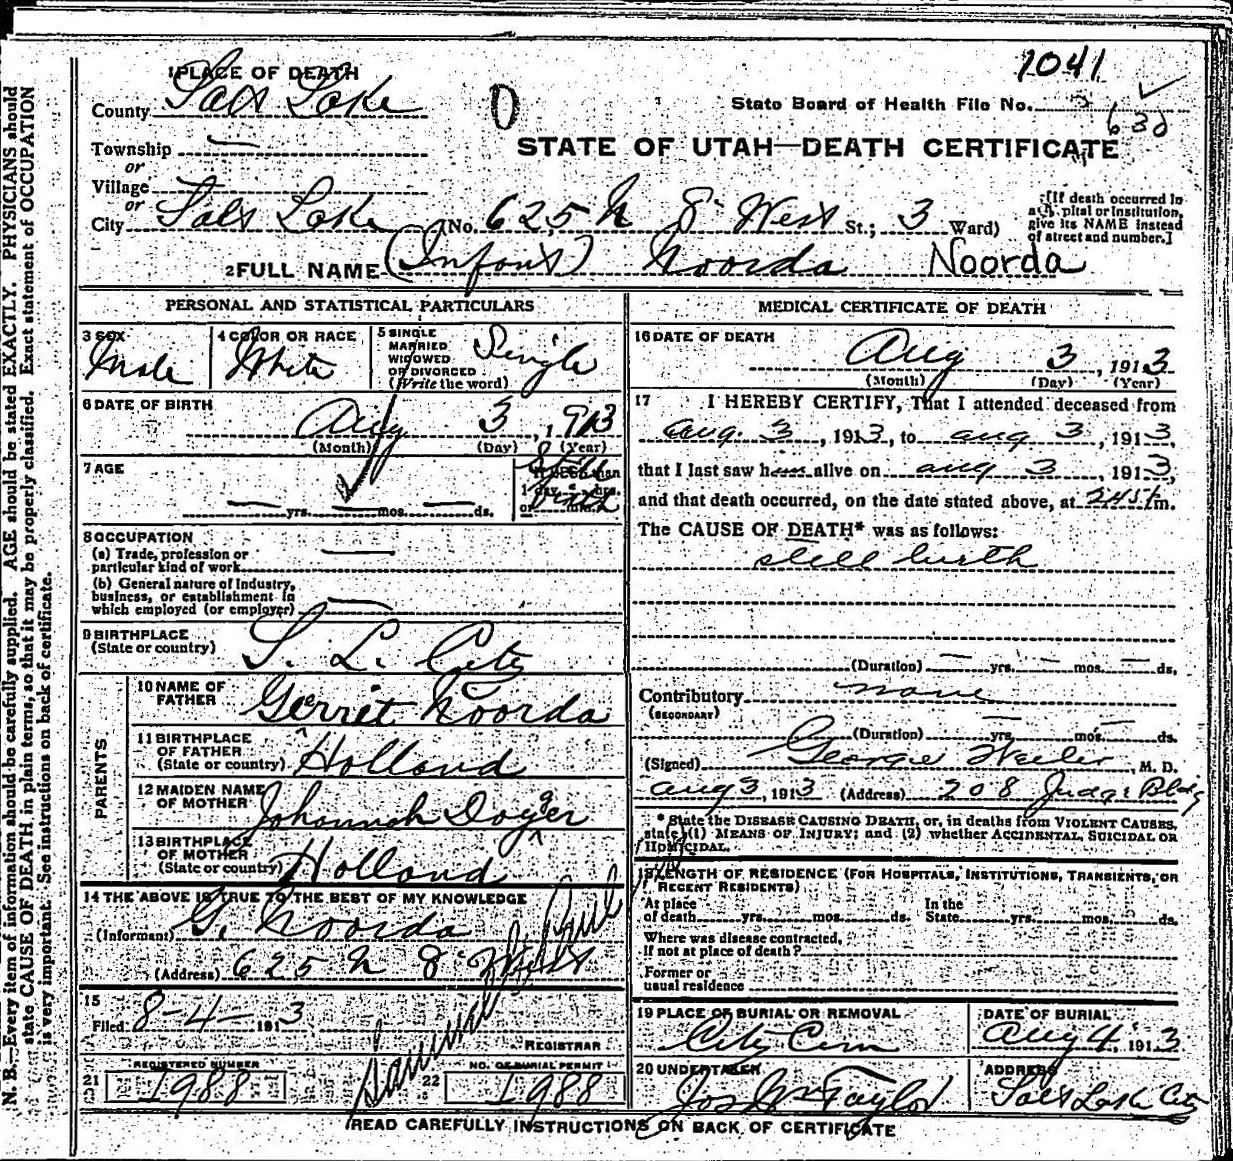 1041
1 PLACE OF DEATH
County Salt Lake
State Board of Health File No.
630
Township
or
Village
or
City Salt Lake (No. 625 N 8" West St.; 3 Ward)
STATE OF UTAH—DEATH CERTIFICATE
[If death occurred in a hospital or institution, give its NAME instead of street and number.]
2 FULL NAME (Infant) Noorda Noorda
PERSONAL AND STATISTICAL PARTICULARS
3 SEX
Male
4 COLOR OR RACE
White
5 SINGLE
MARRIED
WIDOWED
OR DIVORCED
(Write the word)
Single
6 DATE OF BIRTH
Aug 3, 1913
(Month) (Day) (Year)
7 AGE
yrs. mos. ds.
If LESS than
1 day, hrs.
or min.
Still
Birth
8 OCCUPATION
(a) Trade, profession or
particular kind of work
(b) General nature of Industry,
business, or establishment in
which employed (or employer)
9 BIRTHPLACE
(State or country)
S. L. City
PARENTS
10 NAME OF
FATHER
Gerrit Noorda
11 BIRTHPLACE
OF FATHER
(State or country) Holland
12 MAIDEN NAME
OF MOTHER
Johannah Doyer
13 BIRTHPLACE
OF MOTHER
(State or country) Holland
14 THE ABOVE IS TRUE TO THE BEST OF MY KNOWLEDGE
(Informant) G. Noorda
(Address) 625 N 8" West
15
Filed 8-4-1913
REGISTRAR
Samuel G. Paul
REGISTERED NUMBER
21 1988
NO. OF BURIAL PERMIT
22 1988
MEDICAL CERTIFICATE OF DEATH
16 DATE OF DEATH
Aug 3, 1913
(Month) (Day) (Year)
17 I HEREBY CERTIFY, That I attended deceased from
Aug. 3, 1913, to Aug 3, 1913,
that I last saw h alive on Aug 3, 1913,
and that death occurred, on the date stated above, at m.
The CAUSE OF DEATH* was as follows:
still birth
(Duration) yrs. mos. ds.
Contributory none
(SECONDARY)
(Duration) yrs. mos. ds.
(Signed) George Weiler, M. D.
Aug 3, 1913 (Address) 208 Judge Bldg
* State the DISEASE CAUSING DEATH, or, in deaths from VIOLENT CAUSES,
state (1) MEANS OF INJURY; and (2) whether ACCIDENTAL, SUICIDAL OR
HOMICIDAL.
18 LENGTH OF RESIDENCE (FOR HOSPITALS, INSTITUTIONS, TRANSIENTS, OR
RECENT RESIDENTS)
At place In the
of death yrs. mos. ds. State yrs. mos. ds.
Where was disease contracted,
If not at place of death?
Former or
usual residence
19 PLACE OF BURIAL OR REMOVAL
City Cem
DATE OF BURIAL
Aug 4, 1913
20 UNDERTAKER
Jos Wm Taylor
ADDRESS
Salt Lake City
READ CAREFULLY INSTRUCTIONS ON BACK OF CERTIFICATE
N. B.—Every item of information should be carefully supplied. AGE should be stated EXACTLY. PHYSICIANS should
state CAUSE OF DEATH in plain terms, so that it may be properly classified. Exact statement of OCCUPATION
is very important. See instructions on back of certificate.